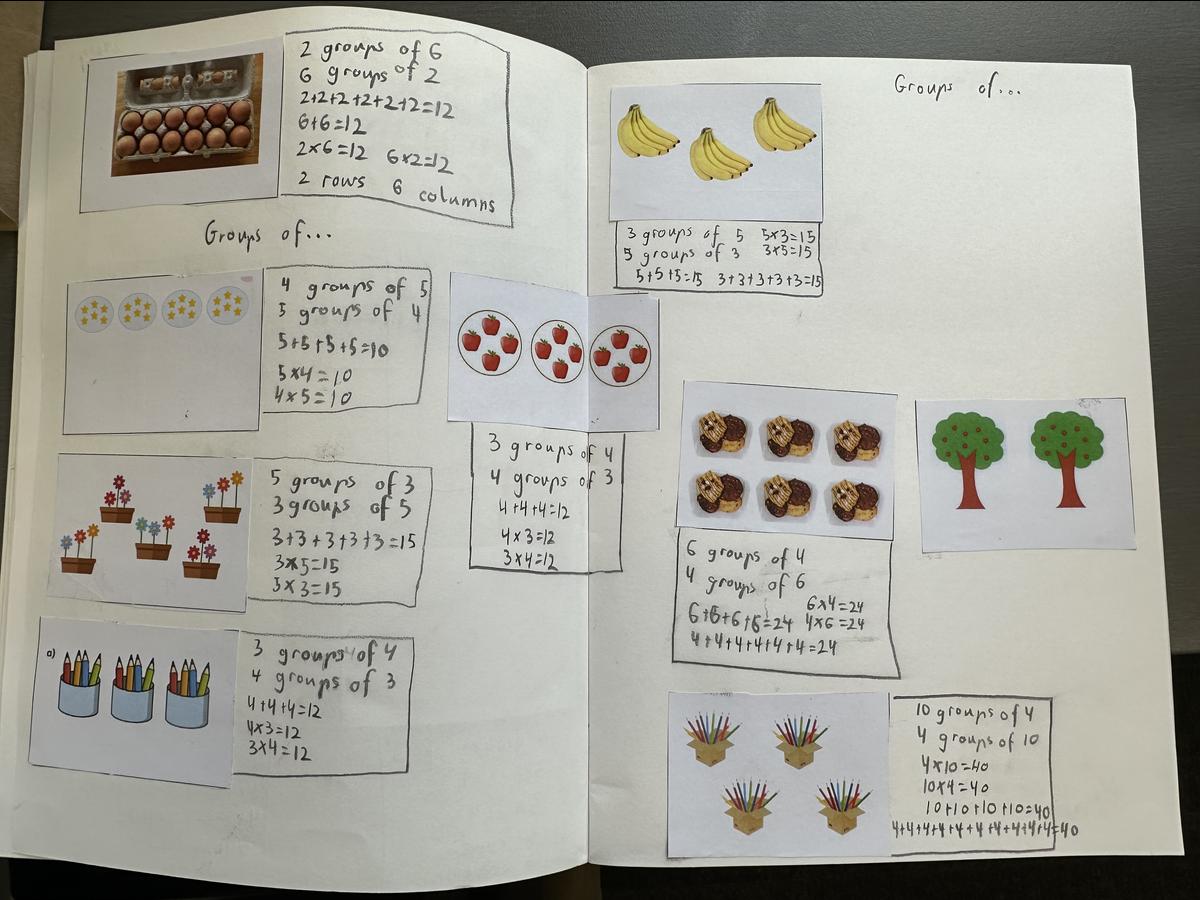 2 groups of 6
6 groups of 2
2+2+2+2+2+2=12
6+6=12
2×6=12 6×2=12
2 rows 6 columns
Groups of...
4 groups of 5
5 groups of 4
5+5+5+5=10
5×4=10
4×5=10
5 groups of 3
3 groups of 5
3+3+3+3+3=15
3×5=15
5×3=15
a)
3 groups of 4
4 groups of 3
4+4+4=12
4×3=12
3×4=12
3 groups of 4
4 groups of 3
4+4+4=12
4×3=12
3×4=12
Groups of...
3 groups of 5 5×3=15
5 groups of 3 3×5=15
5+5+5=15 3+3+3+3+3=15
6 groups of 4
4 groups of 6
6×4=24
6+6+6+6=24 4×6=24
4+4+4+4+4+4=24
10 groups of 4
4 groups of 10
4×10=40
10×4=40
10+10+10+10=40
4+4+4+4+4+4+4+4+4+4=40